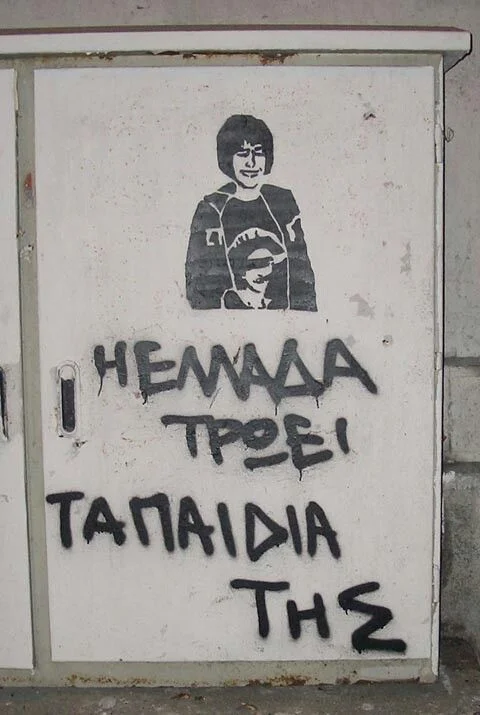 Η ΕΛΛΑΔΑ
ΤΡΩΕΙ
ΤΑ ΠΑΙΔΙΑ
ΤΗΣ